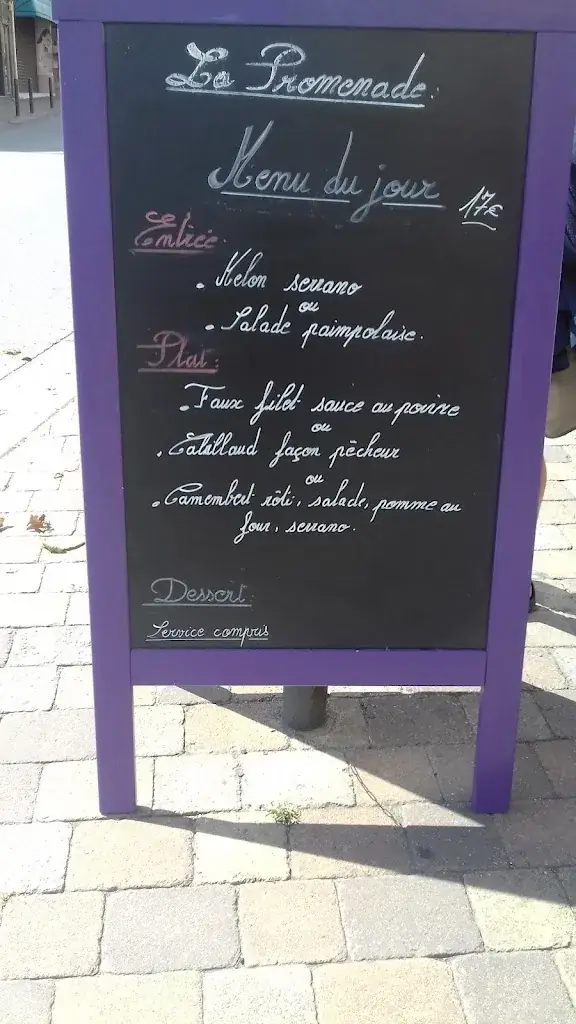 La Promenade:
Menu du jour 17€
Entrée:
. Melon serrano
ou
. Salade paimpolaise.
Plat:
. Faux filet sauce au poivre
ou
. Cabillaud façon pêcheur
ou
. Camembert rôti, salade, pomme au
four, serrano.
Dessert:
Service compris